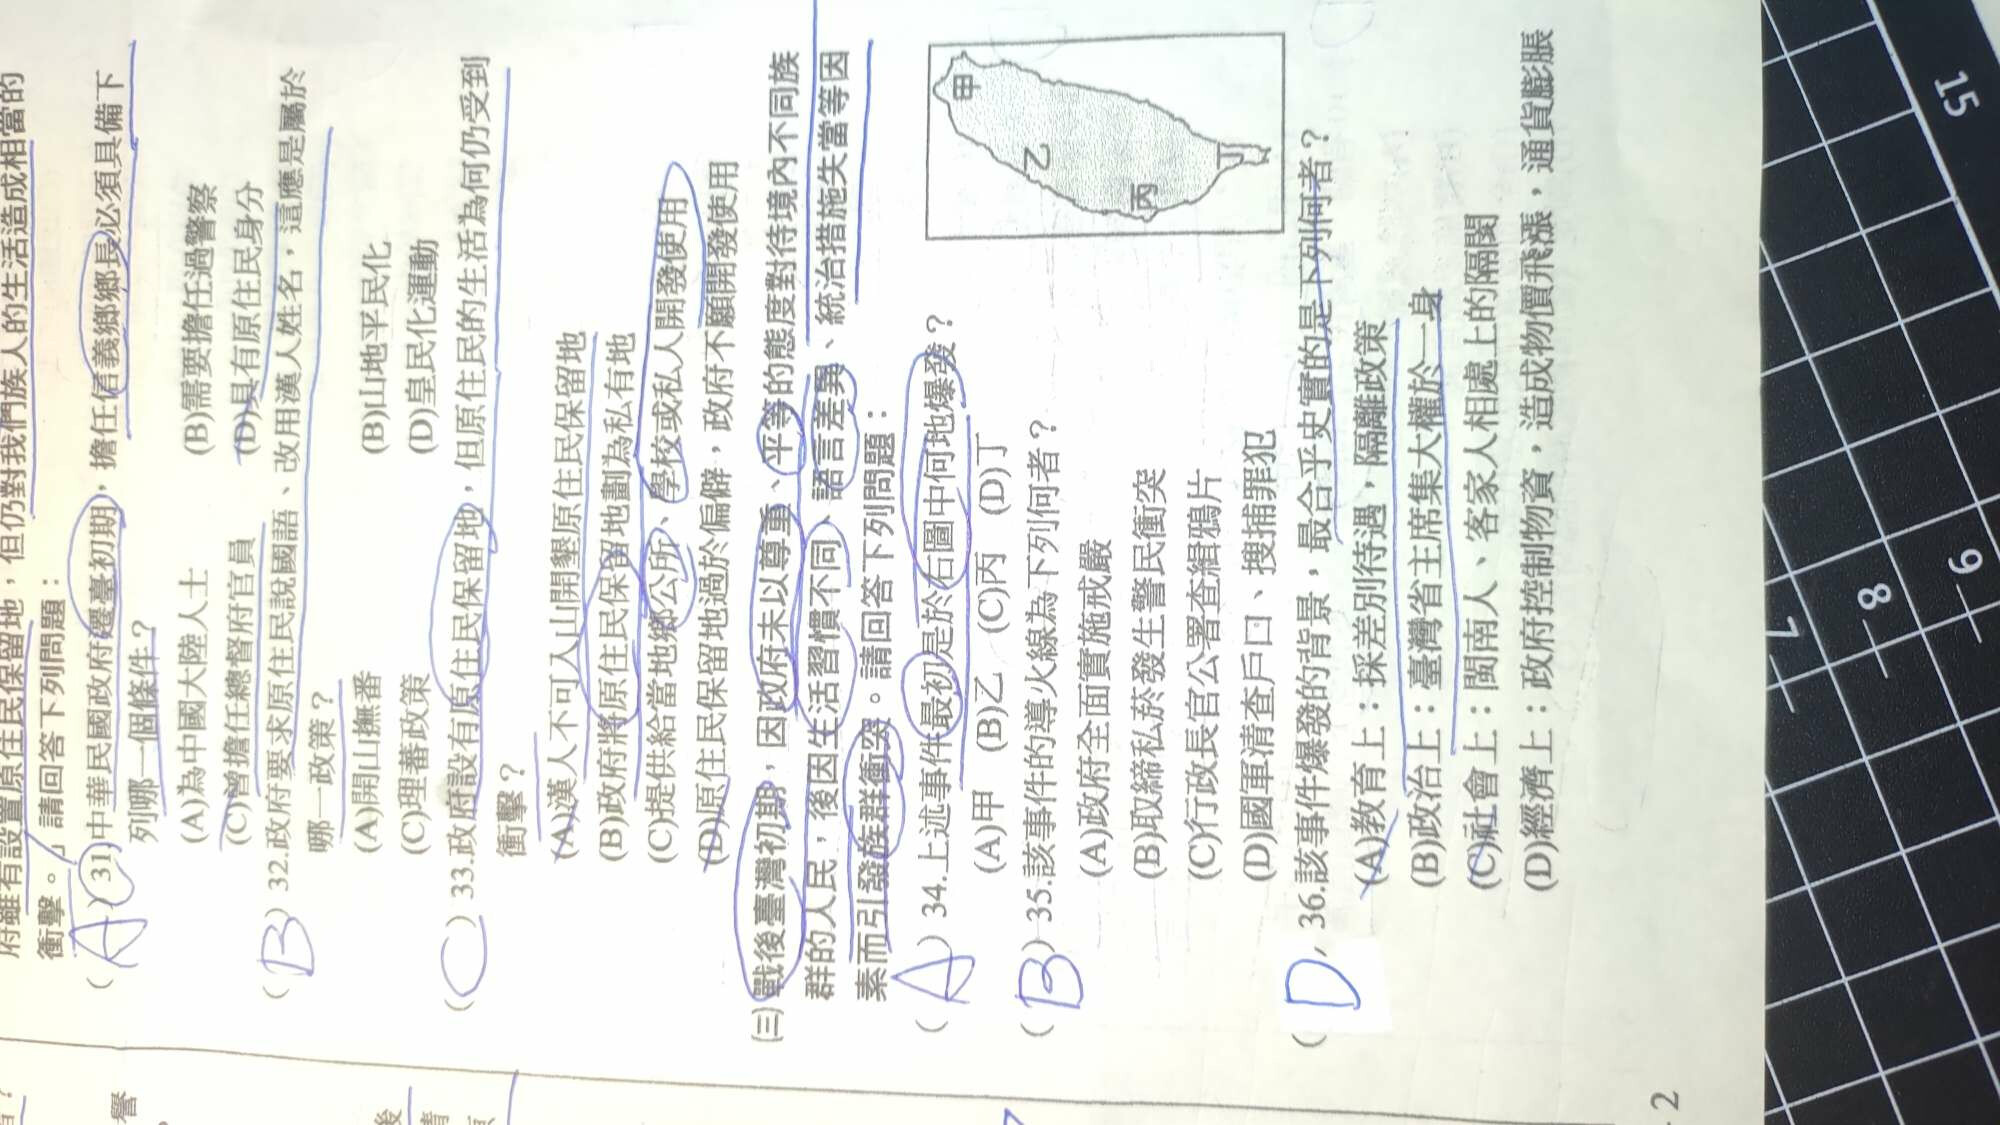 府雖有設置原住民保留地，但仍對我們族人的生活造成相當的
衝擊。」請回答下列問題：
(A)31.中華民國政府遷臺初期，擔任信義鄉鄉長必須具備下
列哪一個條件？
(A)為中國大陸人士 (B)需要擔任過警察
(C)曾擔任總督府官員 (D)具有原住民身分
(B)32.政府要求原住民說國語、改用漢人姓名，這應是屬於
哪一政策？
(A)開山撫番 (B)山地平民化
(C)理蕃政策 (D)皇民化運動
(C)33.政府設有原住民保留地，但原住民的生活為何仍受到
衝擊？
(A)漢人不可入山開墾原住民保留地
(B)政府將原住民保留地劃為私有地
(C)提供給當地鄉公所、學校或私人開發使用
(D)原住民保留地過於偏僻，政府不願開發使用
(三)戰後臺灣初期，因政府未以尊重、平等的態度對待境內不同族
群的人民，後因生活習慣不同、語言差異、統治措施失當等因
素而引發族群衝突。請回答下列問題：
(A)34.上述事件最初是於右圖中何地爆發？
(A)甲 (B)乙 (C)丙 (D)丁
甲
乙
丙
丁
(B)35.該事件的導火線為下列何者？
(A)政府全面實施戒嚴
(B)取締私菸發生警民衝突
(C)行政長官公署查緝鴉片
(D)國軍清查戶口、搜捕罪犯
(D)36.該事件爆發的背景，最合乎史實的是下列何者？
(A)教育上：採差別待遇，隔離政策
(B)政治上：臺灣省主席集大權於一身
(C)社會上：閩南人、客家人相處上的隔閡
(D)經濟上：政府控制物資，造成物價飛漲，通貨膨脹
2
15
8
9
7